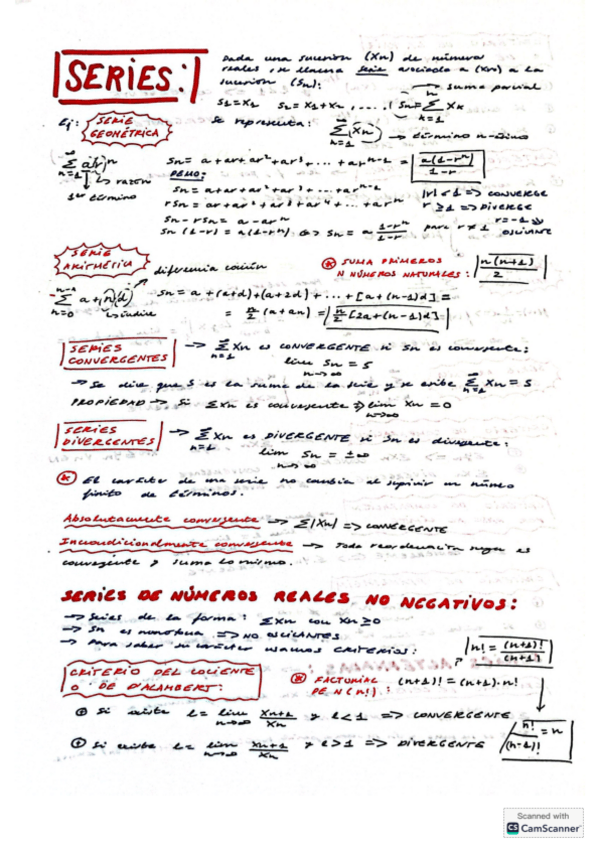 SERIES:
Dada una sucesión (Xn) de números
reales, se llama serie asociada a (Xn) a la
sucesión (Sn):
suma parcial
S1=X1 S2=X1+X2, ..., Sn=∞Σn=1 Xk
Ej: SERIE GEOMÉTRICA
Se representa: ∞Σn=1 (Xn) → término n-ésimo
∞Σn=1 a(r)^n
razón
1er término
Sn = a+ar+ar²+ar³+...+ar^n-1 = a(1-r^n)/1-r
DEMO:
Sn = a+ar+ar²+ar³+...+ar^n-1
rSn = ar+ar²+ar³+ar⁴+...+ar^n
Sn-rSn = a-ar^n
Sn (1-r) = a(1-r^n) <=> Sn = a 1-r^n/1-r para r≠1
|r|<1 => CONVERGE
r≥1 => DIVERGE
r=-1 =>
OSCILANTE
SERIE ARITMÉTICA
diferencia común
* SUMA PRIMEROS
N NÚMEROS NATURALES: n(n+1)/2
Σn=0 a+(n)(d)
índice
Sn = a+(a+d)+(a+2d)+...+[a+(n-1)d] =
= n/2 (a+an) = n/2 [2a+(n-1)d]
SERIES CONVERGENTES → ∞Σn=1 Xn es CONVERGENTE si Sn es convergente:
lim n→∞ Sn = S
→ Se dice que S es la suma de la serie y se escribe ∞Σn=1 Xn = S
PROPIEDAD → Si ΣXn es convergente => lim n→∞ Xn = 0
SERIES DIVERGENTES → ∞Σn=1 Xn es DIVERGENTE si Sn es divergente:
lim n→∞ Sn = ±∞
* El carácter de una serie no cambia al suprimir un número
finito de términos.
Absolutamente convergente → Σ|Xn| => CONVERGENTE
Incondicionalmente convergente → Toda reordenación suya es
convergente y suma lo mismo.
SERIES DE NÚMEROS REALES NO NEGATIVOS:
→ Series de la forma: ΣXn con Xn≥0
→ Sn es monótona => NO OSCILANTES
→ Para saber su carácter usamos CRITERIOS:
n! = (n+1)!/(n+1)
CRITERIO DEL COCIENTE
O DE D'ALAMBERT:
* FACTORIAL
DE N (n!): (n+1)! = (n+1)·n!
Si existe l = lim n→∞ Xn+1/Xn y l<1 => CONVERGENTE
n!/(n-1)! = n
Si existe l = lim n→∞ Xn+1/Xn y l>1 => DIVERGENTE
Scanned with
CS CamScanner